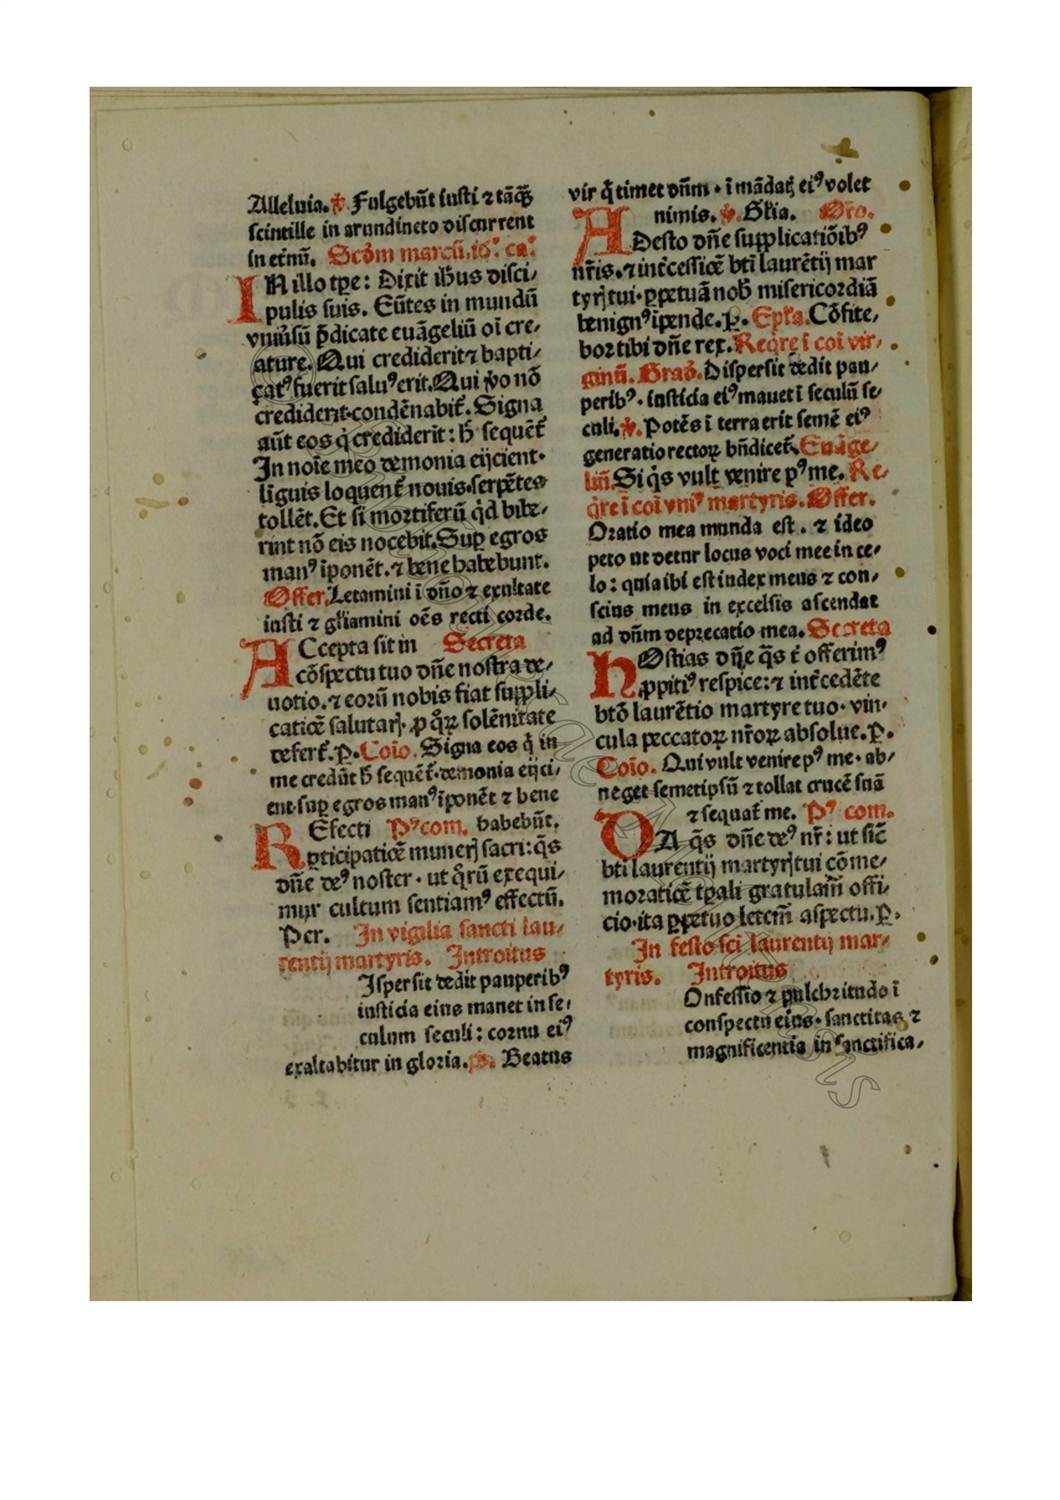 Alleluia. ℣. Fulgebūt iusti ⁊ tāqȝ
scintille in arundineto discurrent
in et̄nū. Scd̄m marcū. 16°. ca°.
IN illo tp̄e: Dixit ih̄us disci/
pulis suis. Eūtes in mundū
vniūsū p̄dicate euāgeliū oī cre/
ature. Qui crediderit ⁊ bapti/
çatꝰ fuerit saluꝰ erit. Qui v̄o nō
crediderit condēnabit̄. Signa
aūt eos q̇ crediderit: h̄ sequēt̄
In noīe meo demonia eijcient.
līguis loquent̄ nouis. serpētes
tollēt. Et si mortiferū q̇d bibe/
rint nō eis nocebit. Suꝑ egros
manꝰ īponēt. ⁊ bene habebunt.
Offer. Letamini ī dn̄o ⁊ exultate
iusti ⁊ gl̄iamini oēs recti corde.
ACcepta sit in Secreta
cōspectu tuo dn̄e nostra de/
uotio. ⁊ eorū nobis fiat suppli/
catiōe salutarꝭ. ꝓ q̇ꝝ solēnitate
defert̄. P. Coīo. Signa eos q̇ in
me credūt h̄ sequēt̄. demonia eijci/
ent. suꝑ egros manꝰ īponēt ⁊ bene
REfecti Pꝰ com. habebūt.
ꝑticipatiōe munerꝭ sacri: q̄s
dn̄e deꝰ noster. ut q̇rū exequi/
mur cultum sentiamꝰ effectū.
Per. In vigilia sancti lau/
rentij martyris. Introitus
Ispersit dedit pauperibꝰ
iusticia eius manet in se/
culum seculi: cornu eiꝰ
exaltabitur in gloria. ps. Beatus
vir q̇ timet dn̄m. ī mādatꝭ eiꝰ volet
nimis. ℣. Gl̄ia. Oro.
ADesto dn̄e supplicatiōibꝰ
nr̄is. ⁊ int̄cessiōe bt̄i laurētij mar
tyrꝭ tui. ꝑpetuā nob̄ misericordiā
benignꝰ īpende. P. Ep̄ra. Cōfite/
bor tibi dn̄e rex. Req̇re ī coī vir/
ginū. Grad̄. Dispersit dedit pau/
peribꝰ. iusticia eiꝰ manet ī seculū se/
culi. ℣. Potēs ī terra erit semē eiꝰ
generatio rectoꝝ bn̄dicet̄. Euāge/
liū. Si q̇s vult venire pꝰ me. Re/
q̇re ī coī vniꝰ martyris. Offer.
Oratio mea munda est. ⁊ ideo
peto ut detur locus voci mee in ce/
lo: quia ibi est iudex meus ⁊ con/
scius meus in excelsis ascendat
ad dn̄m deprecatio mea. Secreta
HOstias dn̄e q̄s t̄ offerimꝰ
ꝓpitiꝰ respice: ⁊ int̄cedēte
btō laurētio martyre tuo. vin/
cula peccatoꝝ nr̄oꝝ absolue. P.
Coīo. Qui vult venire pꝰ me. ab/
neget semetipsū ⁊ tollat crucē suā
⁊ sequat̄ me. Pꝰ com.
DA q̄s dn̄e deꝰ nr̄: ut sic̄
bti laurentij martyrꝭ tui cōme/
moratiōe tp̄ali gratulam̄ offi/
cio. ita ꝑpetuo letem̄ aspectu. P.
In festo sci laurentij mar/
tyris. Introitus
Onfessio ⁊ pulchritudo ī
conspectu eius. sanctitas ⁊
magnificentia in sanctifica/